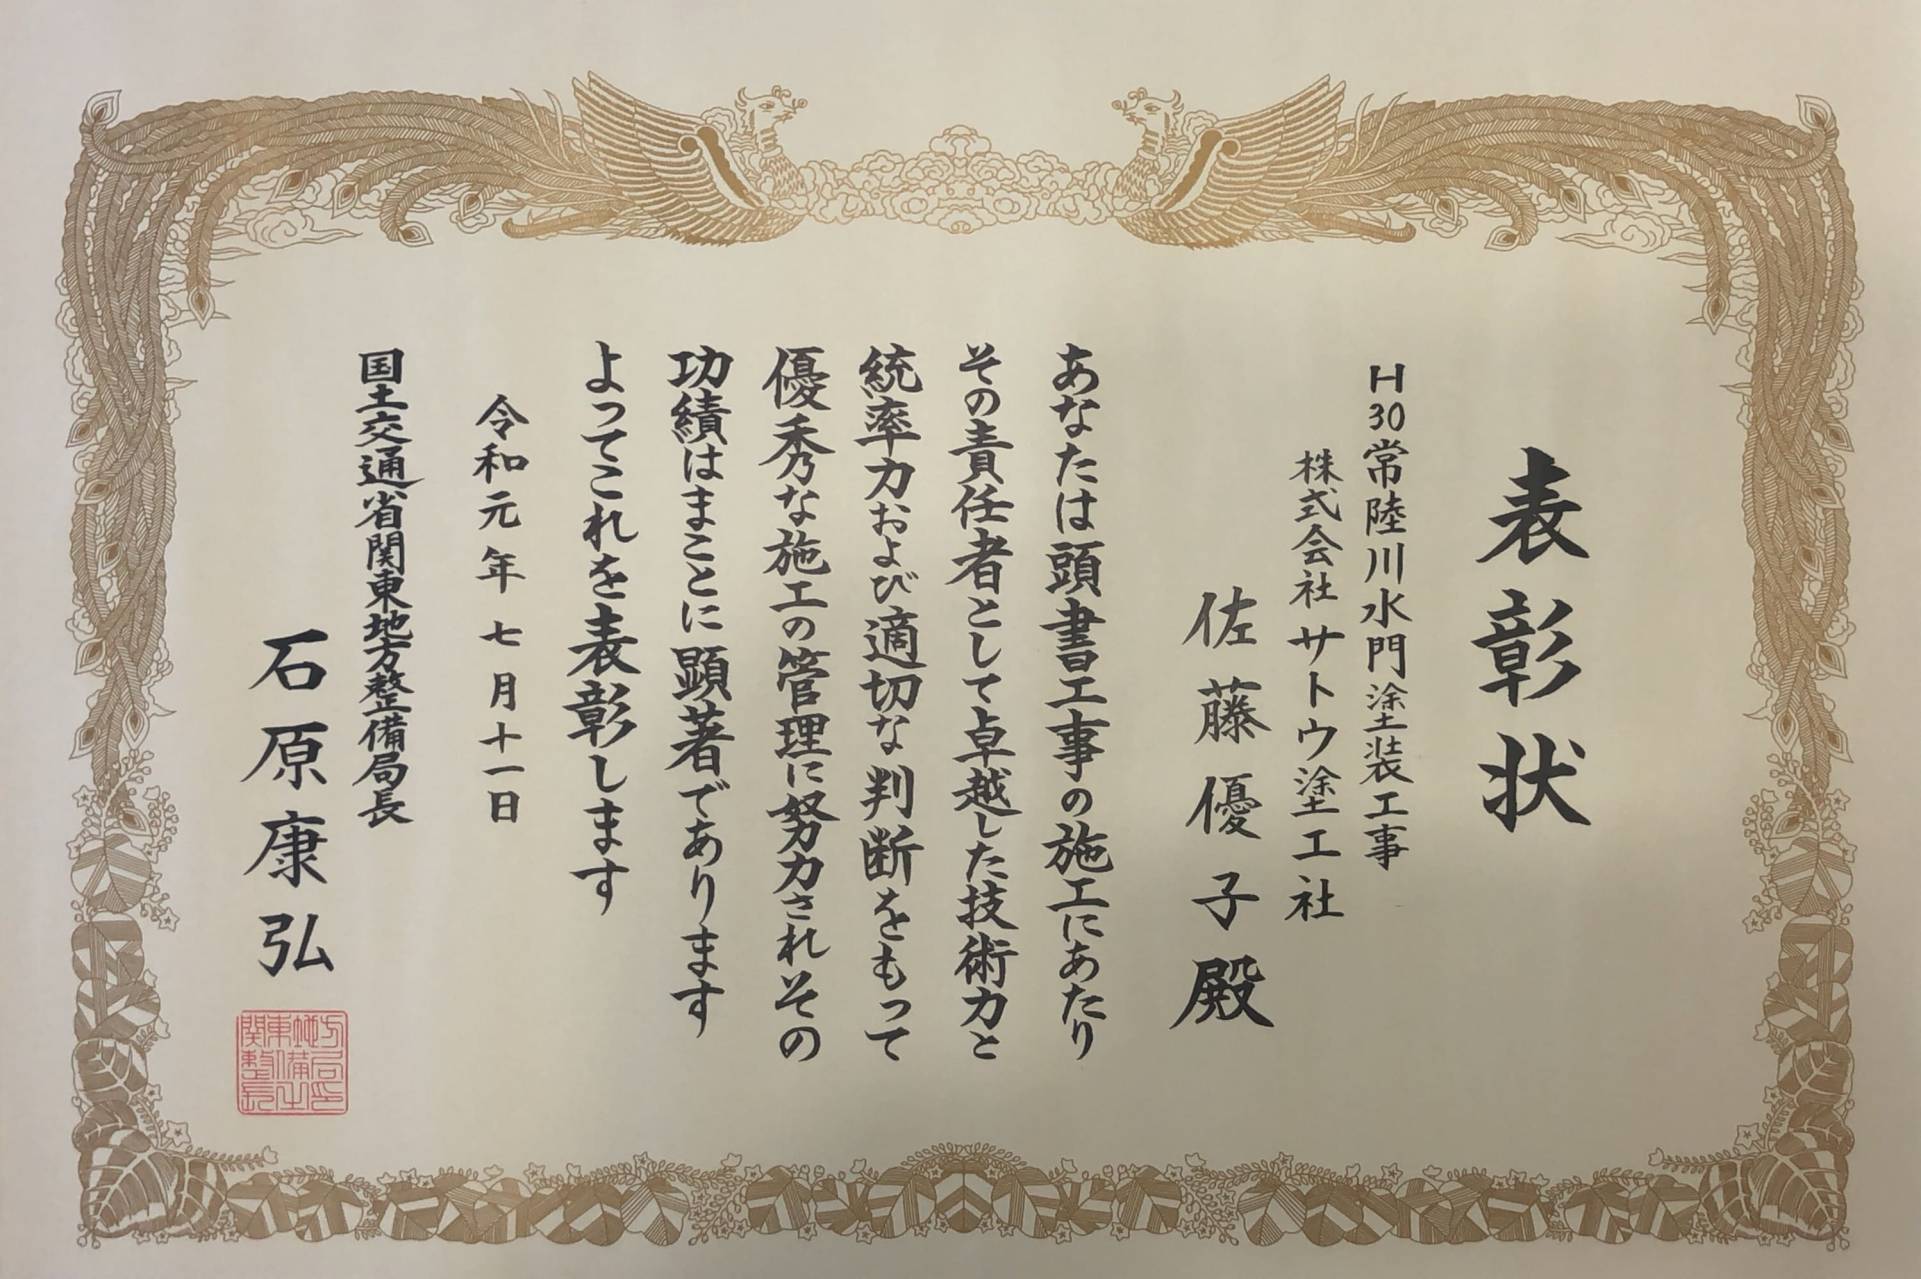 表彰状
H30常陸川水門塗装工事
株式会社サトウ塗工社
佐藤優子殿
あなたは頭書工事の施工にあたり
その責任者として卓越した技術力と
統率力および適切な判断をもって
優秀な施工の管理に努力されその
功績はまことに顕著であります
よってこれを表彰します
令和元年七月十一日
国土交通省関東地方整備局長
石原康弘